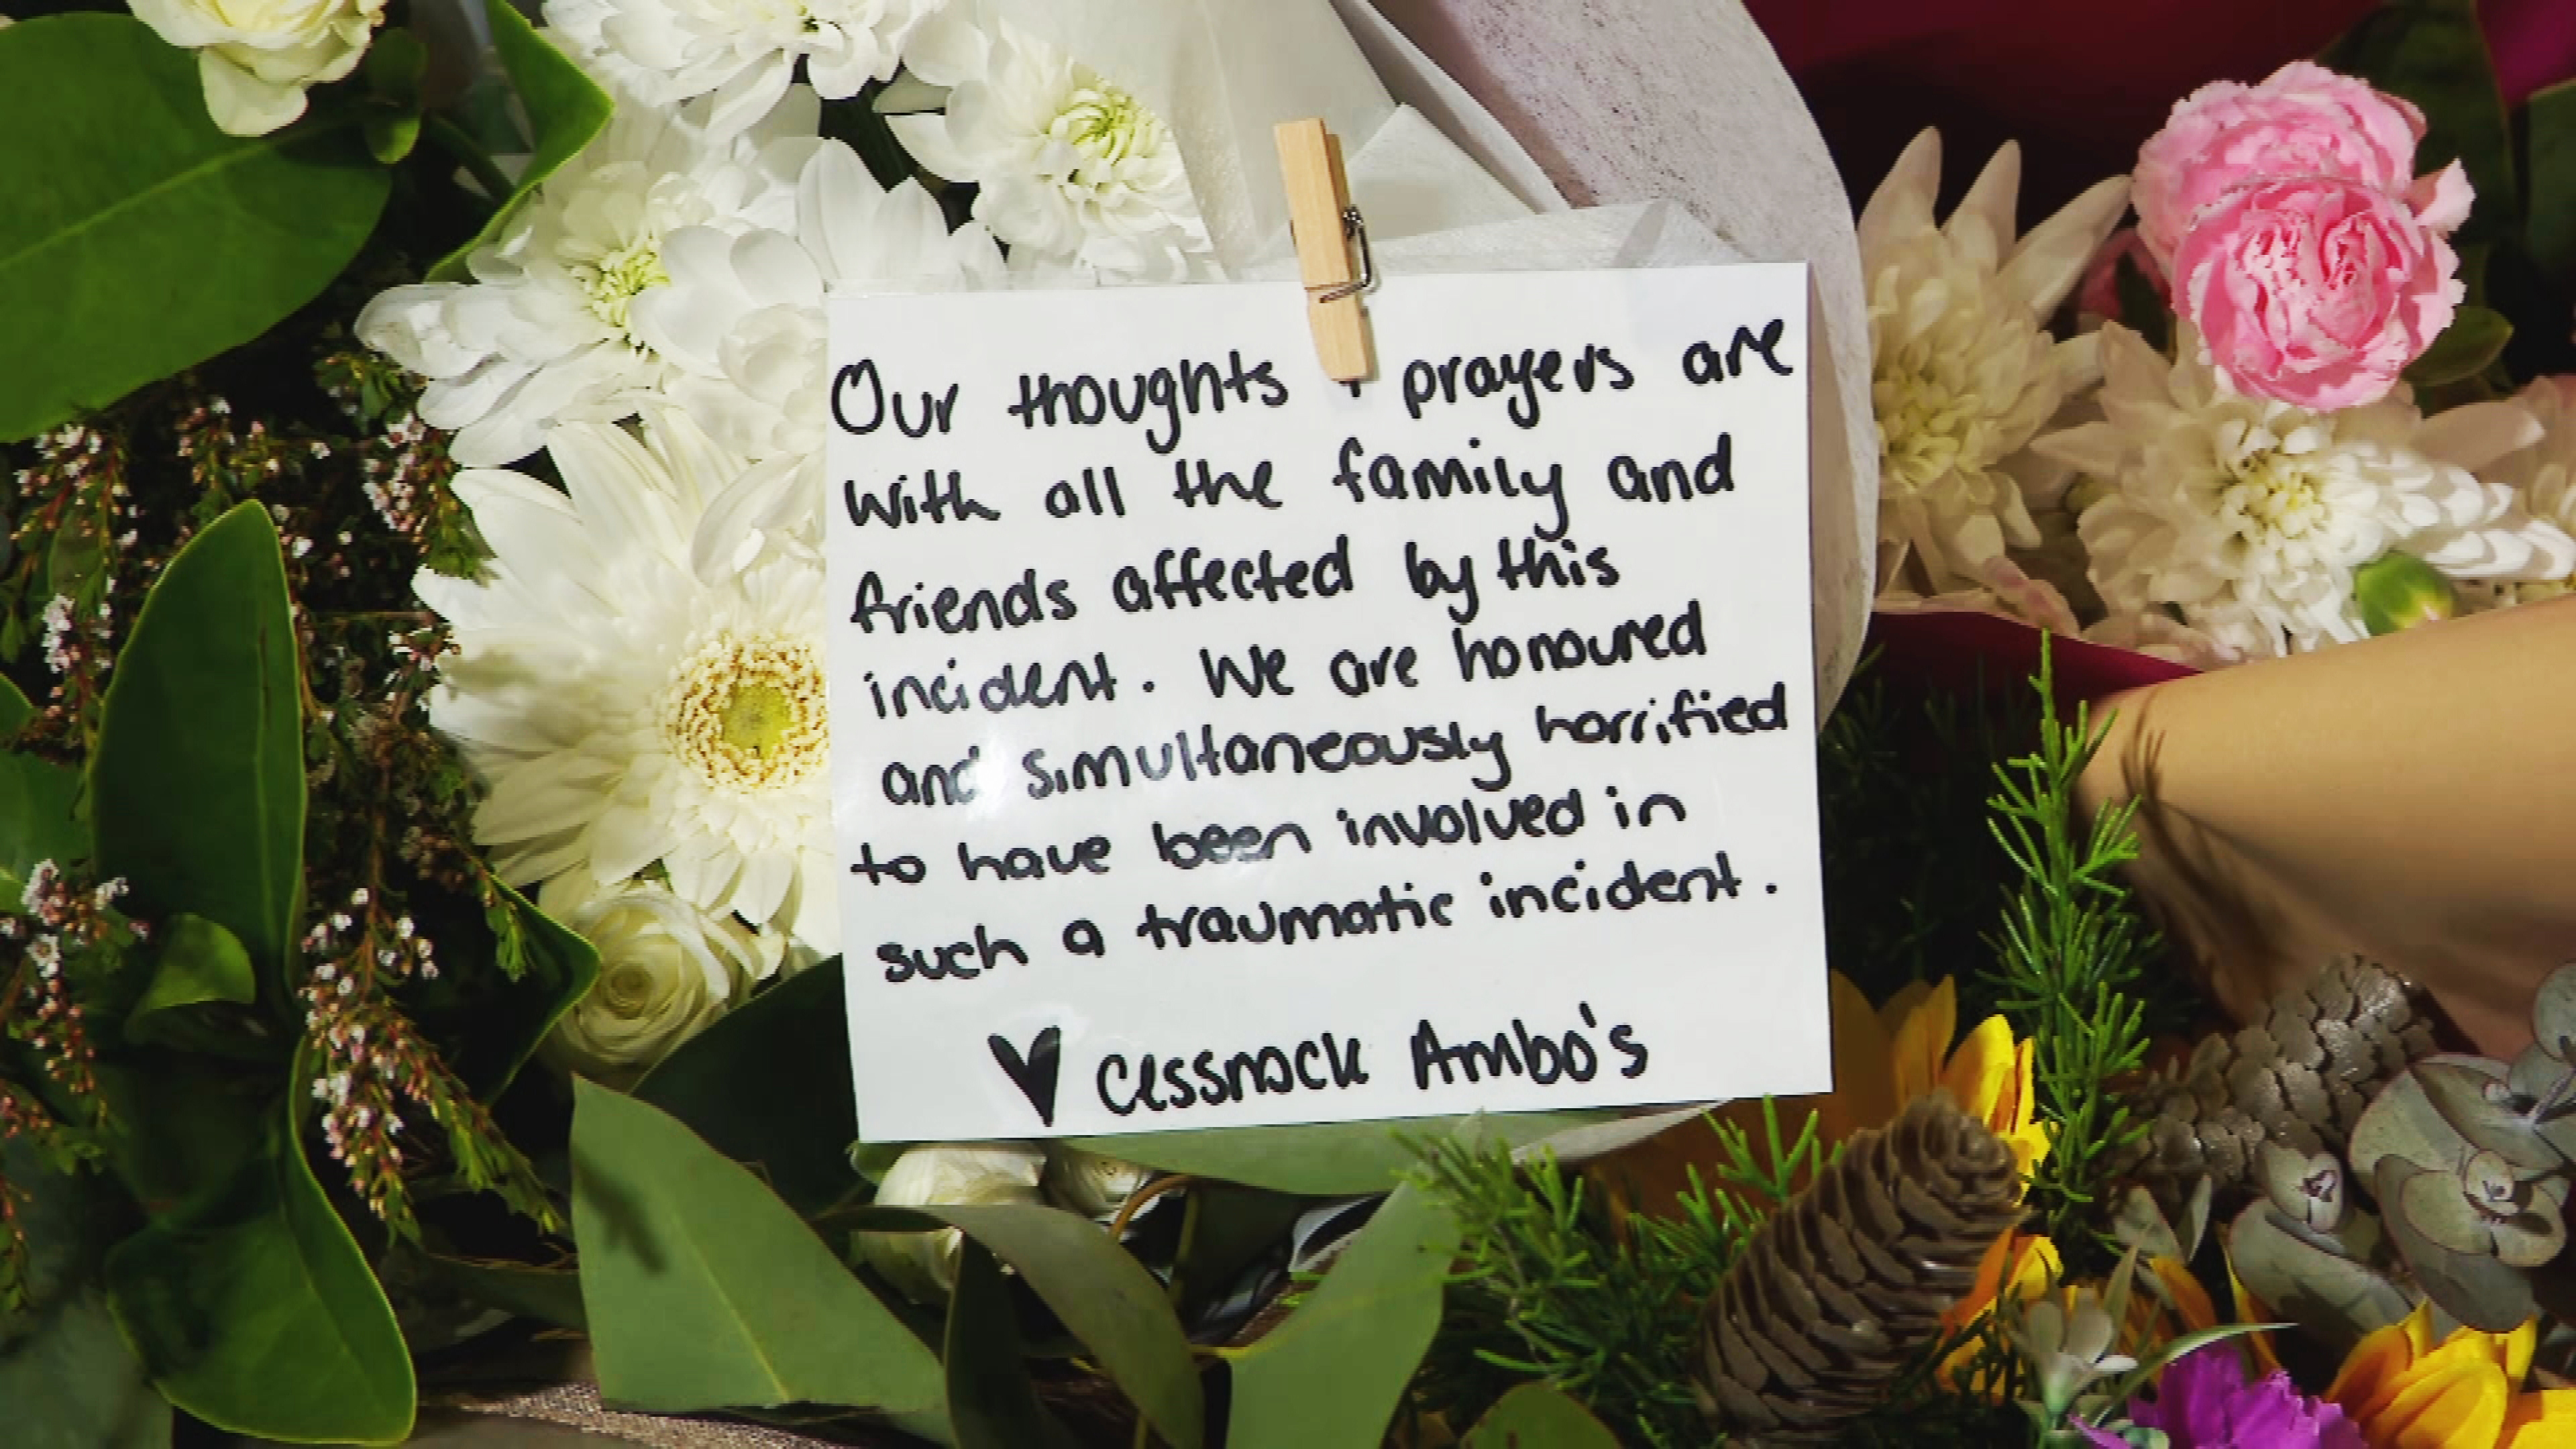 Our thoughts + prayers are
with all the family and
friends affected by this
incident. We are honoured
and simultaneously horrified
to have been involved in
such a traumatic incident.
♥ Cessnock Ambo's